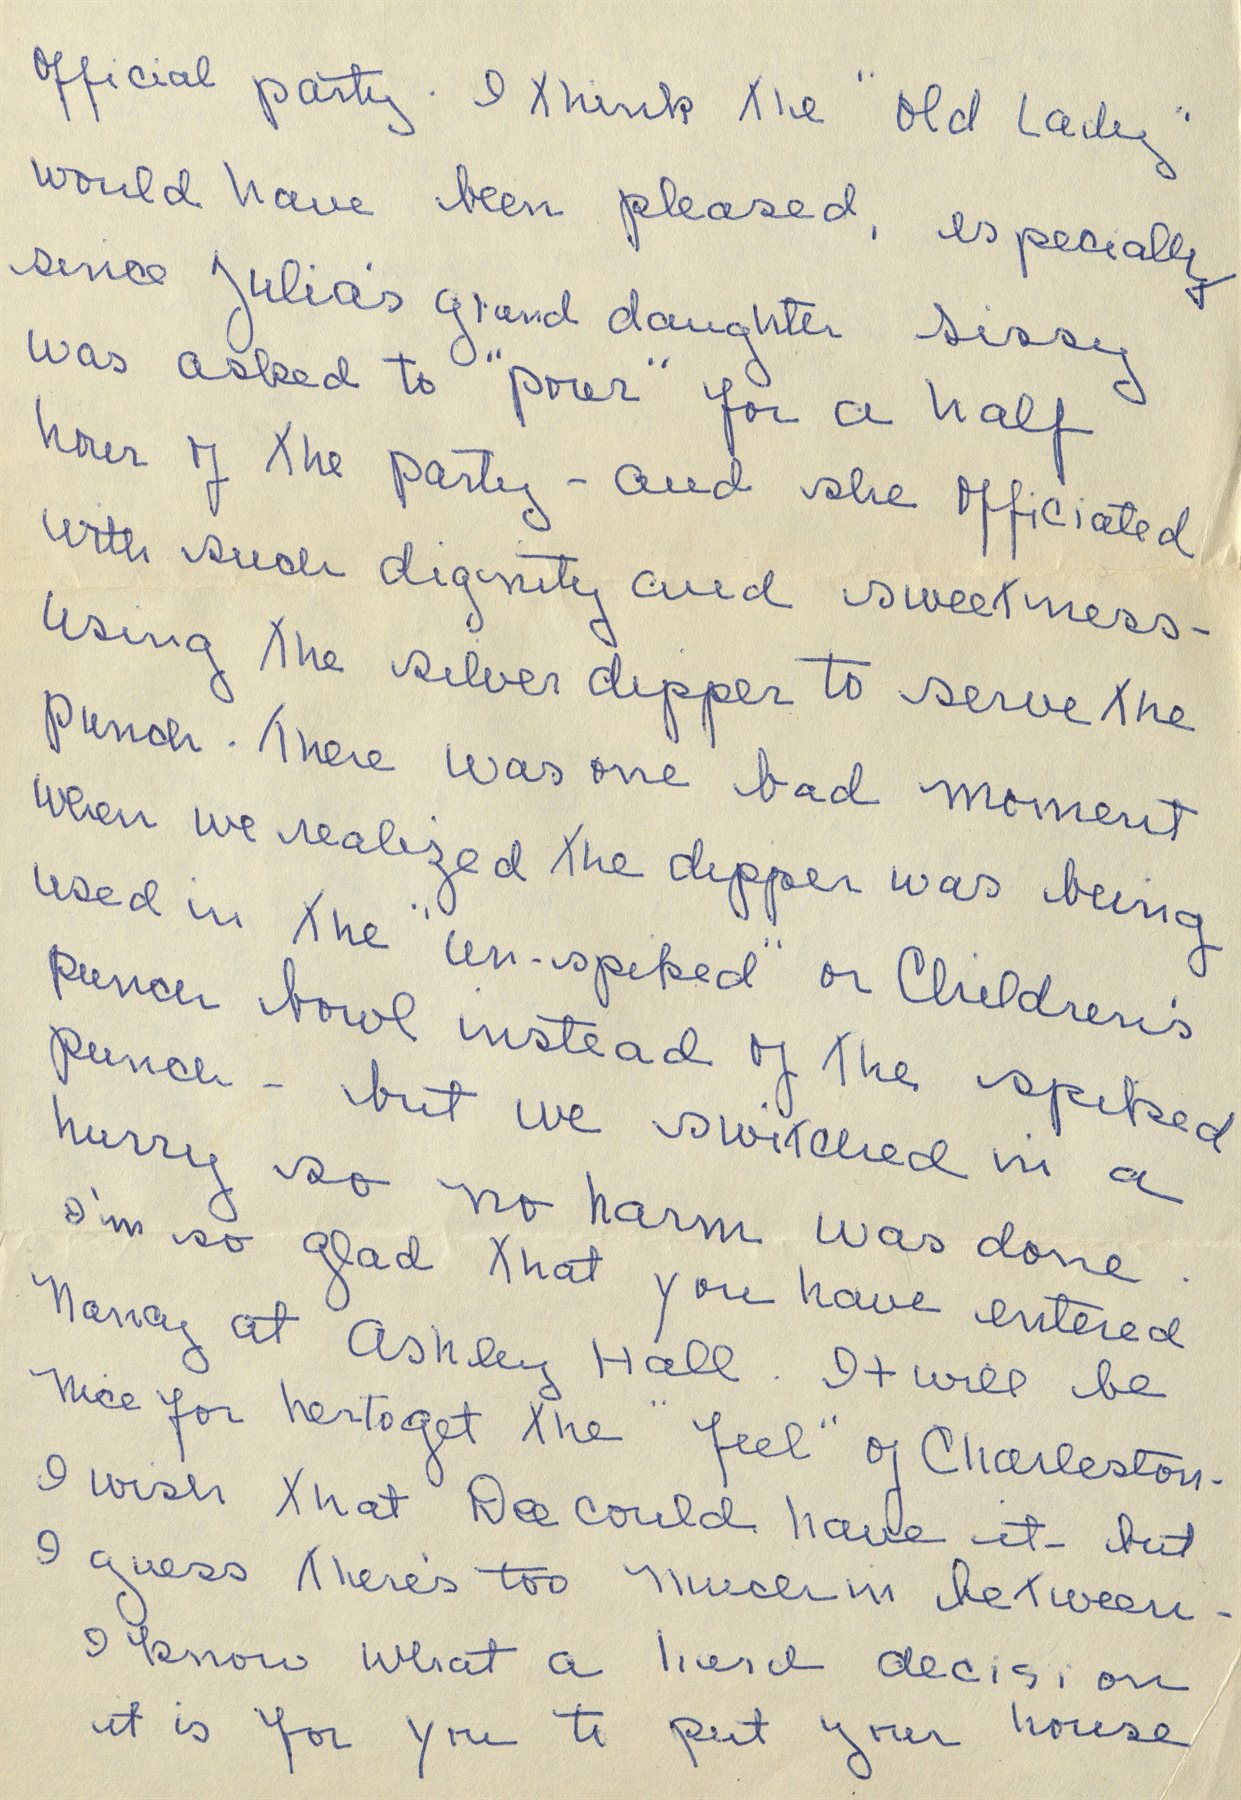 official party. I think the "Old Lady"
would have been pleased, especially
since Julia's grand daughter Sissy
was asked to "pour" for a half
hour of the party - and she officiated
with such dignity and sweetness -
using the silver dipper to serve the
punch. There was one bad moment
when we realized the dipper was being
used in the "un-spiked" or Children's
punch bowl instead of the spiked
punch - but we switched in a
hurry so no harm was done.
I'm so glad that you have entered
Nancy at Ashley Hall. It will be
nice for her to get the "feel" of Charleston.
I wish that Dee could have it - but
I guess there's too much in between -
I know what a hard decision
it is for you to put your house